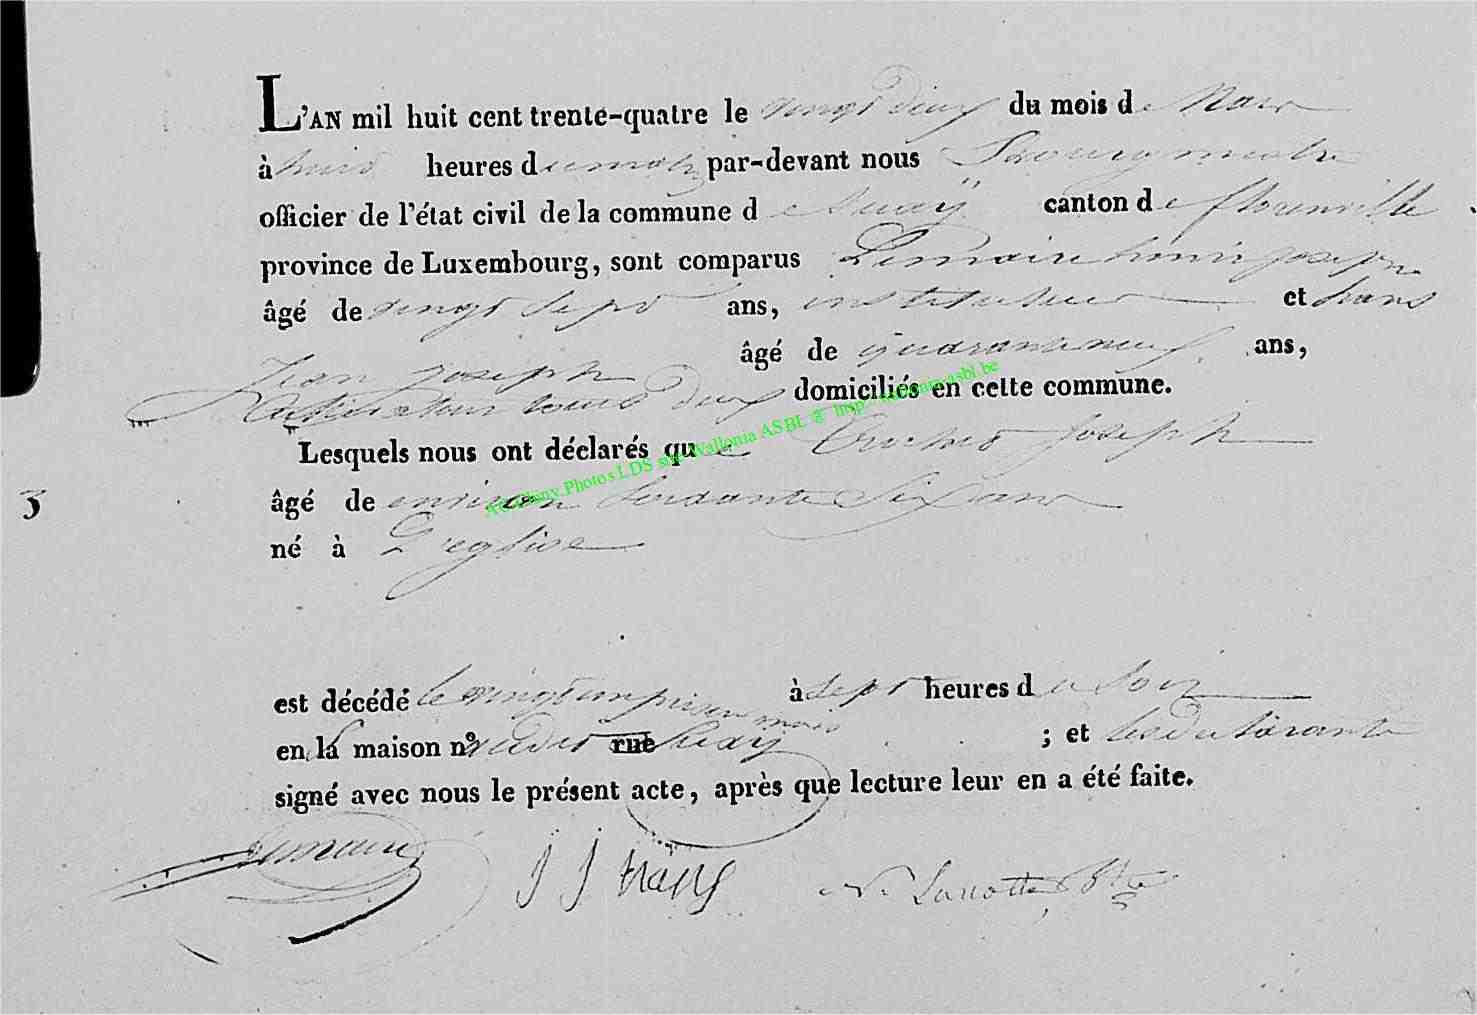 L'AN mil huit cent trente-quatre le vingt deux du mois de Mars
à huit heures du matin par-devant nous Bourgmestre
officier de l'état civil de la commune d e Suaÿ canton de florenville
province de Luxembourg, sont comparus Lemaire henri joseph
âgé de vingt sept ans, instituteur et hans
Jean joseph âgé de quarante neuf ans,
Cultivateur tous deux domiciliés en cette commune.
Lesquels nous ont déclarés que joseph
3
âgé de environ soixante Six ans
né à L'eglise
est décédé le vingt un présent mois à sept heures du Soir
en la maison nº rue ; et les déclarants
signé avec nous le présent acte, après que lecture leur en a été faite.
Lemaire J J hans N. Lanotte